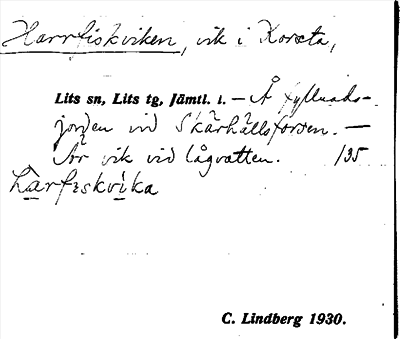 Harrfiskviken, vik i Korsta,
Lits sn, Lits tg, Jämtl. l. — Å fyllnads-
jorden vid Skärhällsforsen. —
Är vik vid lågvatten. 135
harfiskvika
C. Lindberg 1930.